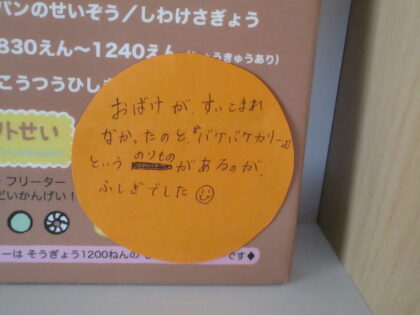 パンのせいぞう／しわけさぎょう
830えん～1240えん
こうつうひし
トせい
フリーター
だいかんげい！
ーは そうぎょう1200ねんの
です♦
おばけが、すいこまれ
なかったのと、"バケバケカリー"
という のりもの があるのが、
ふしぎでした